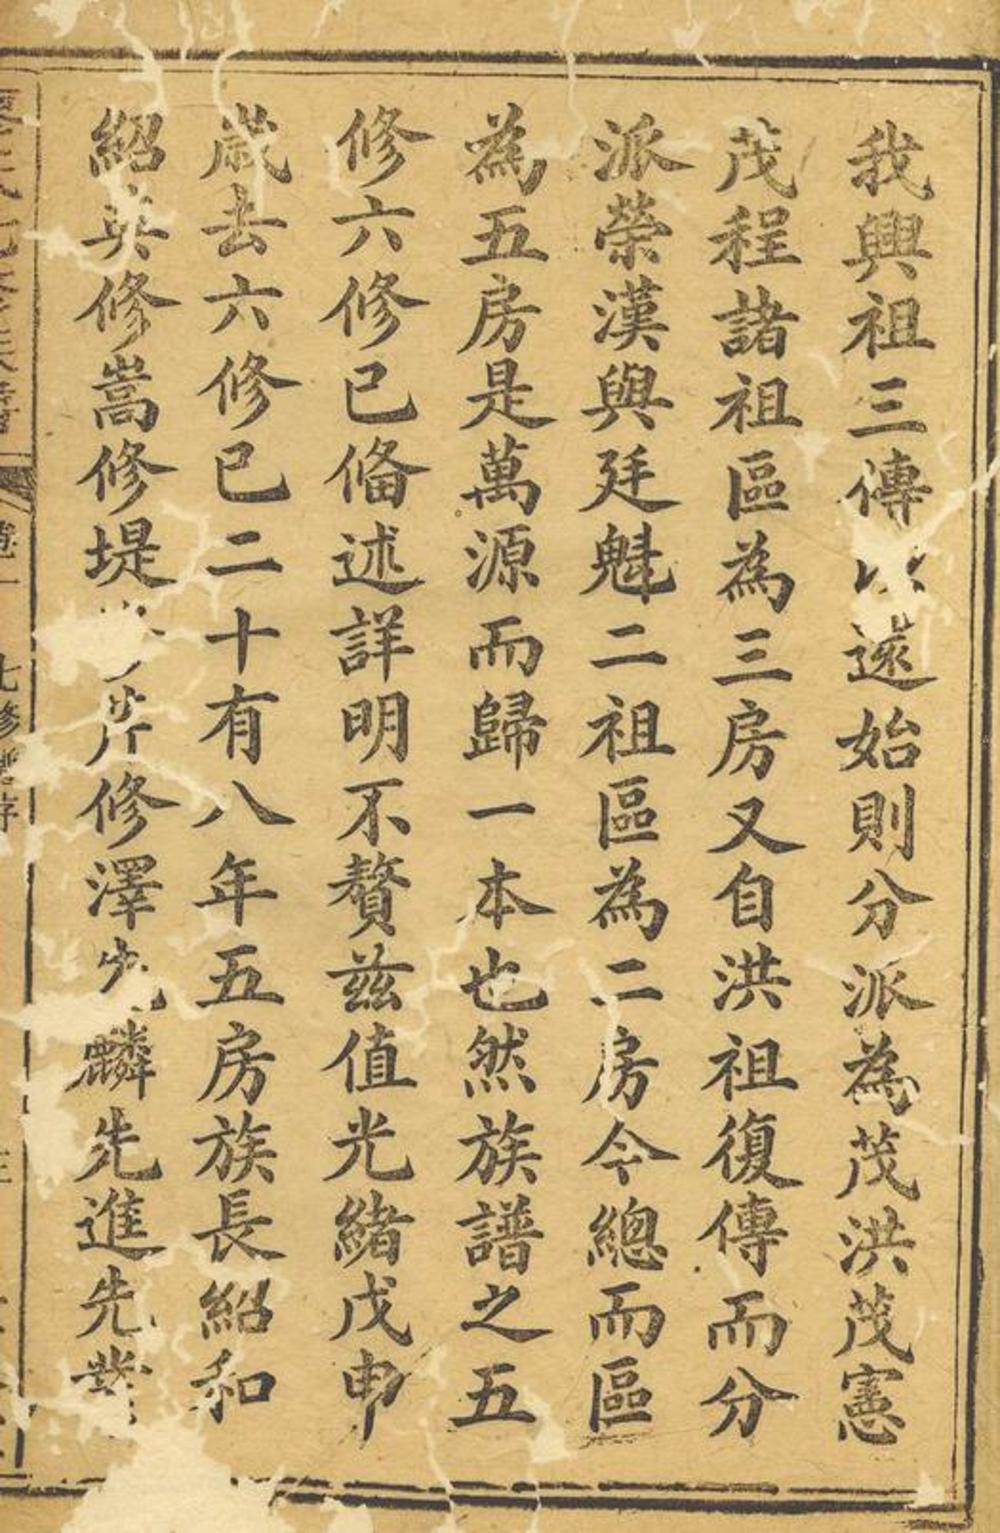 我興祖三傳遠始則分派為茂洪茂憲
茂程諸祖區為三房又自洪祖復傳而分
派榮漢與廷魁二祖區為二房今總而區
為五房是萬源而歸一本也然族譜之五
修六修已偹述詳明不贅兹值光緒戊申
歲去六修已二十有八年五房族長紹和
紹英修嵩修堤修澤先麟先進先
七修